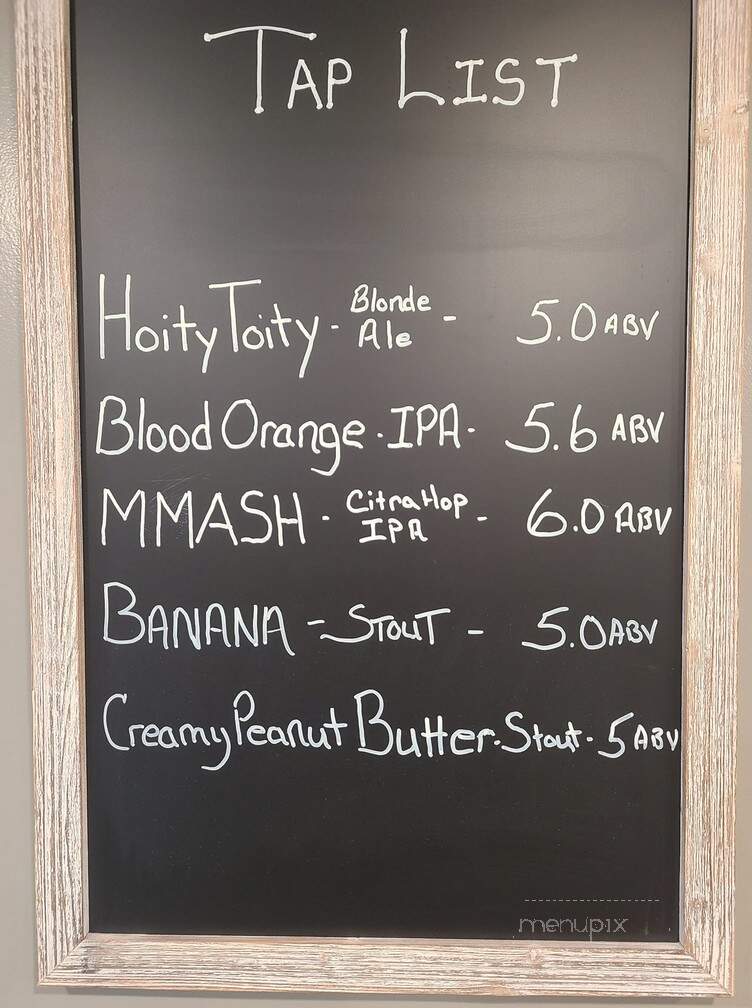 TAP LIST
Hoity Toity - Blonde Ale - 5.0 ABV
Blood Orange - IPA - 5.6 ABV
MMASH - Citra Hop IPA - 6.0 ABV
BANANA - STOUT - 5.0 ABV
Creamy Peanut Butter - Stout - 5 ABV
menupix